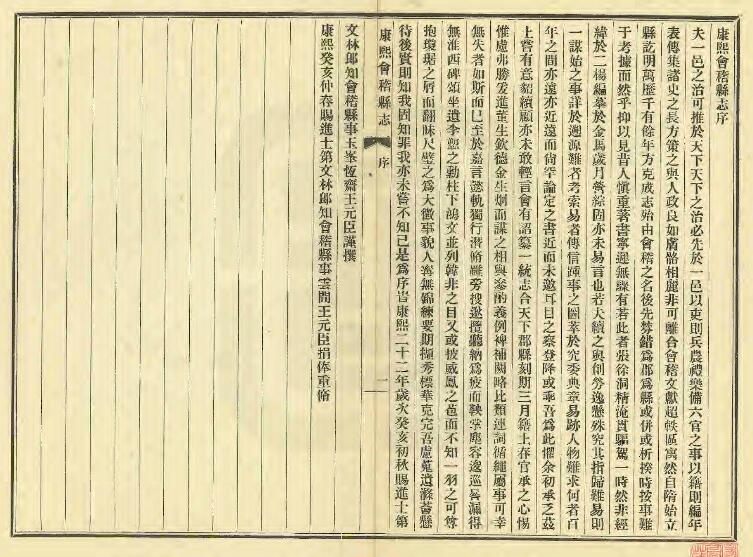 康熙會稽縣志序
夫一邑之治可推於天下天下之治必先於一邑以吏則兵農禮樂備六官之事以籍則編年
表傳集諸史之長方策之與人政良如膚骼相麗非可離合會稽文獻超軼區寓然自隋始立
縣訖明萬歷千有餘年方克成志殆由會稽之名後先棼錯為郡為縣或併或析揆時按事難
于考據而然乎抑以見昔人慎重著書寧遲無驟有若此者張徐洞精淹貫驅駕一時然非經
緯於二楊編摹於金馬歲月營綜固亦未易言也若夫續之與創勞逸懸殊究其指歸難易則
一謀始之事詳於遡源難者考索易者傳信踵事之圖萃於究委典章易跡人物難求何者百
年之間亦遠亦近遠而尚罕論定之書近而未邀耳目之察登降或乖吾為此懼余初承乏茲
土嘗有意紹續顧亦未敢輕言會有詔纂一統志合天下郡縣刻期三月籍上春官承之心惕
惟慮弗勝爰進董生欽德金生炯而謀之相與斟酌義例裨補闕略比類連詞循繩屬事可幸
無失者如斯而已至於嘉言懿軌獨行潛脩羅旁搜遐攬聽納為疲而鞅掌塵容逡巡晷漏得
無淮西碑頌坐遺李愬之勳柱下鴻文並列韓非之目又或披威鳳之苞而不知一羽之可尊
抱瓊琚之屑而翻昧尺璧之為大徵事貌人容無錦練要期擷秀標華克完吾慮蒐遺滌薈懸
待後賢則知我固知罪我亦未嘗不知已是為序旹康熙二十二年歲次癸亥初秋賜進士第
康熙會稽縣志 序 一
文林郎知會稽縣事玉峯恆齋王元臣謹撰
康熙癸亥仲春賜進士第文林郎知會稽縣事雲間王元臣捐俸重脩